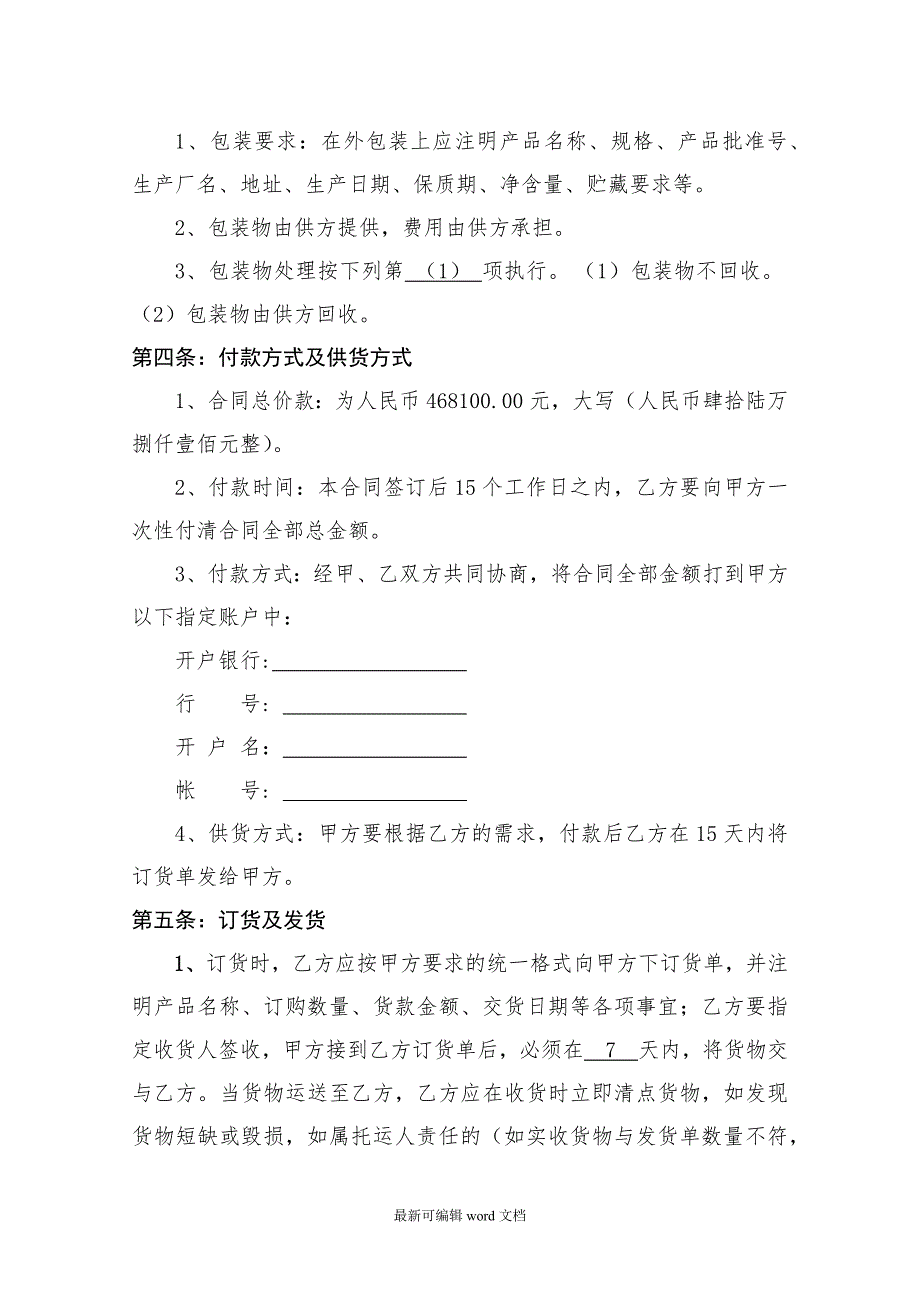 1、包装要求：在外包装上应注明产品名称、规格、产品批准号、
生产厂名、地址、生产日期、保质期、净含量、贮藏要求等。
2、包装物由供方提供，费用由供方承担。
3、包装物处理按下列第 （1） 项执行。（1）包装物不回收。
（2）包装物由供方回收。
第四条：付款方式及供货方式
1、合同总价款：为人民币 468100.00 元，大写（人民币肆拾陆万
捌仟壹佰元整）。
2、付款时间：本合同签订后 15 个工作日之内，乙方要向甲方一
次性付清合同全部总金额。
3、付款方式：经甲、乙双方共同协商，将合同全部金额打到甲方
以下指定账户中：
开户银行:
行 号:
开 户 名：
帐 号:
4、供货方式：甲方要根据乙方的需求，付款后乙方在 15 天内将
订货单发给甲方。
第五条：订货及发货
1、订货时，乙方应按甲方要求的统一格式向甲方下订货单，并注
明产品名称、订购数量、货款金额、交货日期等各项事宜；乙方要指
定收货人签收，甲方接到乙方订货单后，必须在 7 天内，将货物交
与乙方。当货物运送至乙方，乙方应在收货时立即清点货物，如发现
货物短缺或毁损，如属托运人责任的（如实收货物与发货单数量不符，
最新可编辑 word 文档